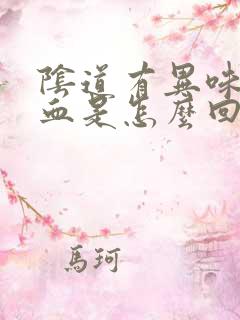 陰道有異味
血是怎麼回
馬珂